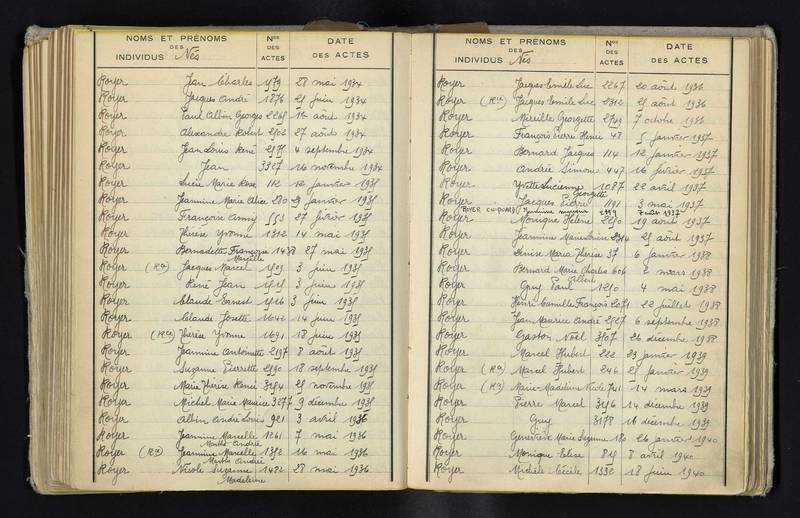 NOMS ET PRÉNOMS
DES
INDIVIDUS Nés
Nos
DES
ACTES
DATE
DES ACTES
Royer Jean Charles 1579 28 mai 1934
Royer Jacques André 1876 25 juin 1934
Royer Paul Albin Georges 12 août 1934
Royer Alexandre Robert 2502 27 août 1934
Royer Jean Louis René 2575 4 septembre 1934
Royer Jean 3327 16 novembre 1934
Royer Lucie Marie Rose 112 12 janvier 1935
Royer Jeannine Marie Alice 280 29 janvier 1935
Royer Françoise Anny 553 27 février 1935
Royer Thérèse Yvonne 1312 14 mai 1935
Royer Bernadette Françoise 27 mai 1935
Marcelle
Royer (Rec) Jacques Marcel 1509 3 juin 1935
Royer René Jean 1525 3 juin 1935
Royer Claude Ernest 1526 3 juin 1935
Royer Claude Josette 1642 14 juin 1935
Royer (Rec) Thérèse Yvonne 1691 18 juin 1935
Royer Jeannine Antoinette 2197 8 août 1935
Royer Suzanne Pierrette 2590 18 septembre 1935
Royer Marie Thérèse Renée 3254 25 novembre 1935
Royer Michel Marie Maurice 3277 9 décembre 1935
Royer Albin André Louis 921 3 avril 1936
Royer Jeannine Marcelle 1261 7 mai 1936
Marthe Andrée
Royer (Rec) Jeannine Marcelle 1352 16 mai 1936
Marthe Andrée
Royer Nicole Suzanne 1482 28 mai 1936
Madeleine
NOMS ET PRÉNOMS
DES
INDIVIDUS Nés
Nos
DES
ACTES
DATE
DES ACTES
Royer Jacques Emile Luc 2267 20 août 1936
Royer (Rec) Jacques Emile Luc 2312 25 août 1936
Royer Mireille Georgette 2749 7 octobre 1936
Royer François Pierre Henri 48 5 janvier 1937
Royer Bernard Jacques 114 12 janvier 1937
Royer Andrée Simone 447 16 février 1937
Royer Yvette Lucienne 1087 22 avril 1937
Georgette
Royer Jacques Pierre 1191 3 mai 1937
ROYER 7 août 1937
Royer Monique Hélène 2250 19 août 1937
Royer Jeannine 2314 25 août 1937
Royer Denise Maria Thérèse 37 6 janvier 1938
Royer Bernard Marie Charles 606 2 mars 1938
Albert
Royer Guy Paul 1250 4 mai 1938
Royer Henri Camille François 2071 22 juillet 1938
Royer Jean Maurice André 2527 6 septembre 1938
Royer Gaston Noël 3507 26 décembre 1938
Royer Marcel Hubert 222 23 janvier 1939
Royer (Rec) Marcel Hubert 246 25 janvier 1939
Royer (Rec) Marie-Madeleine 741 14 mars 1939
Royer Pierre Marcel 3156 14 décembre 1939
Royer Guy 3178 16 décembre 1939
Royer Geneviève Marie Suzanne 180 26 janvier 1940
Royer Monique Elise 815 8 avril 1940
Royer Michèle Cécile 1332 18 juin 1940